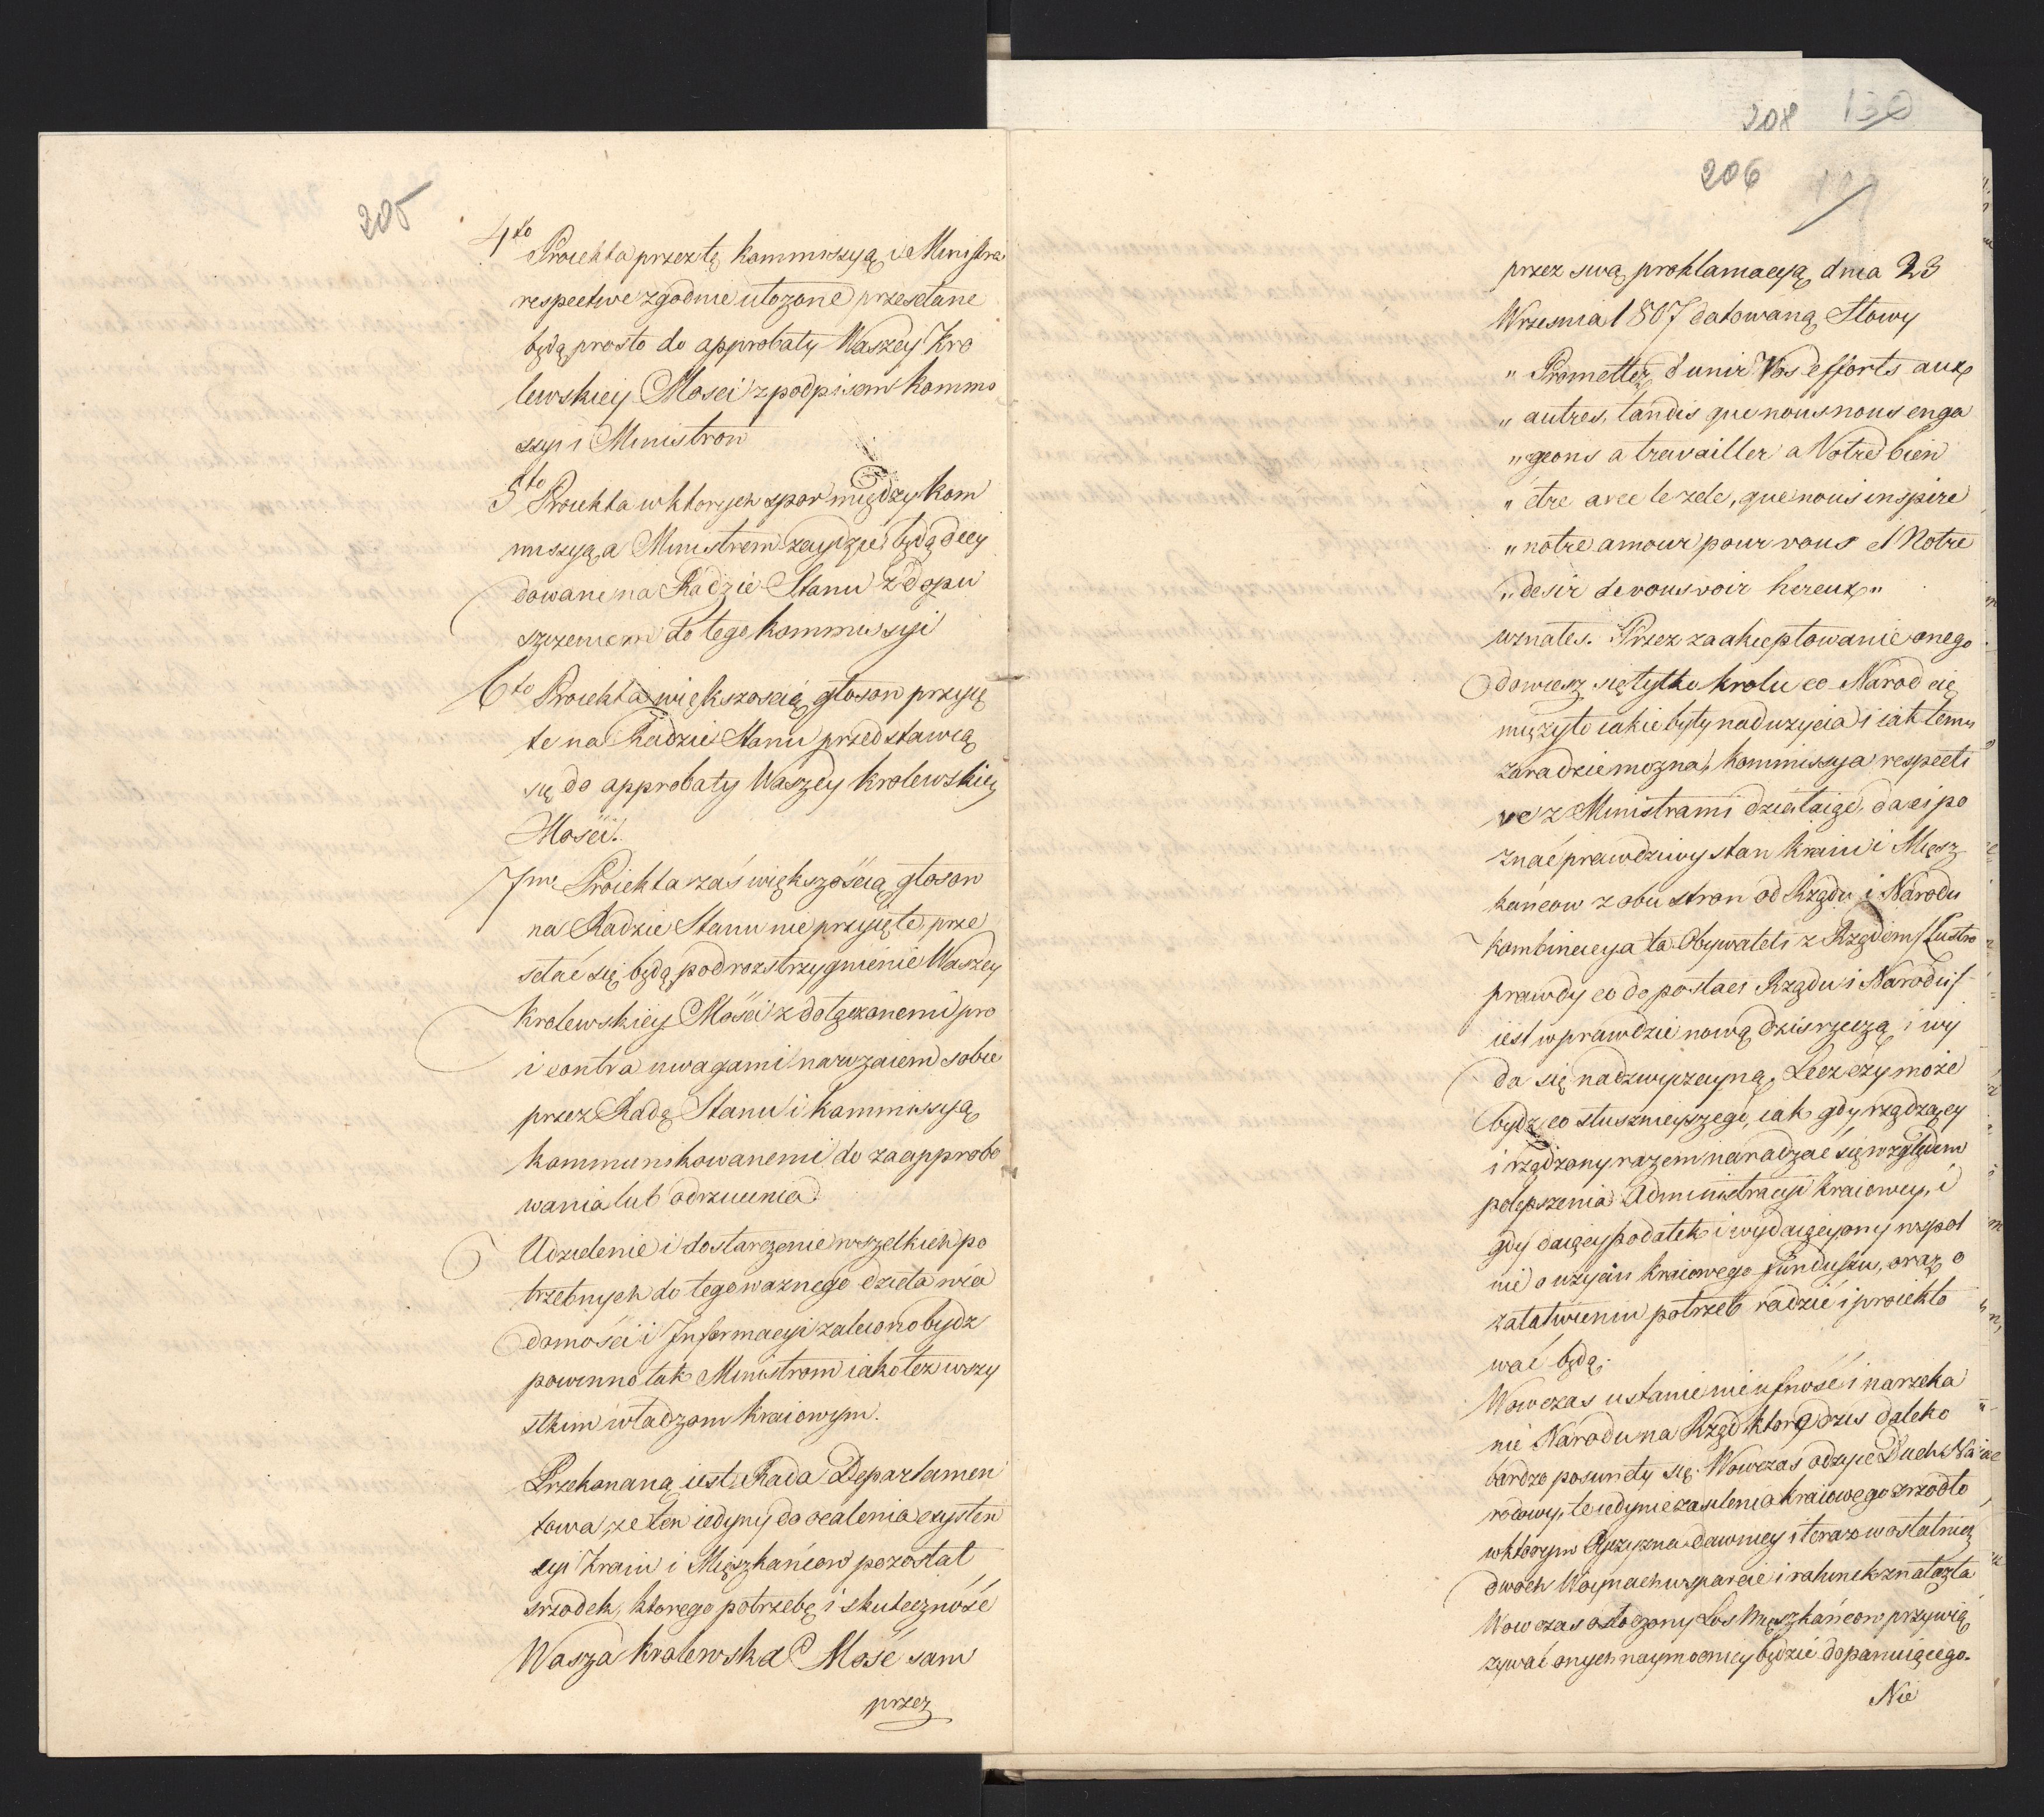 205
4to Proiekta przez tę Kommissyą i Ministra
respective zgodnie ułożone przesełane
będą prosto do approbaty Waszey Kro
lewskiey Mosci z podpisem Kommi
ssyi i Ministrow
5to Proiekta w ktorych spor między Kom
missyą a Ministrem zaydzie będą decy
dowane na Radzie Stanu z dopu
szczeniem do tego Kommissyi
6to Proiekta większoscią głosow przyię
te na Radzie Stanu przedstawią
się do approbaty Waszey Krolewskiey
Mości.
7me Proiekta zaś większością głosow
na Radzie Stanu nie przyięte prze
setać się będą pod rozstrzygnienie Waszey
Krolewskiey Mości z dołączonemi pro
i contra uwagami nawzaiem sobie
przez Radę Stanu i Kommissyą
kommunikowanemi do zaapprobo
wania lub odrzucenia
Udzielenie i dostarczenie wszelkich po
trzebnych do tego waznego dzieła wia
domości i Informacyi zalecono bydz
powinno tak Ministrom iako tez wszy
stkim władzom Kraiowym.
Przekonaną iest Rada Departamen
towa, ze ten iedyny do ocalenia exysten
cyi Kraiu i Mięszkańcow pozostał
srzodek, ktorego potrzebę i skuteczność
Wasza Krolewska Mość sam
przez
208 130
206
przez swą proklamacyą dnia 23
Wrzesnia 1807 datowaną Słowy
" Promettez d'unir Vos efforts aux
" autres, tandis que nous nous enga
" geons a travailler a Votre bien
" étre avec le zele, que nous inspire
" notre amour pour vous et Notre
" desir de vous voir hereux "
uznałes. Przez zaakceptowanie onego
dowiesz się tylko Krolu co Narod cię
mięzyło iakie były naduzycia i iak temu
zaradzic mozna, Kommissya respecti
ve z Ministrami działaiąc, da ci po
znać prawdziwy stan Kraiu i Mięsz
kańcow z obu stron od Rządu i Narodu
Kombinacya ta Obywateli z Rządem /: Lustro
prawdy co do postaci Rządu i Narodu :/
iest wprawdzie nową dzis rzeczą i wy
da się nadzwyczayną, Lecz czy może
bydz co słusznieyszego, iak gdy rządzący
i rządzony razem naradzać się względem
polepszenia Administracyi Kraiowey, i
gdy daiący podatek i wydaiący ony wspol
nie o uzyciu Kraiowego funduszu, oraz o
załatwieniu potrzeb radzić i proiekto
wać będą.
Wowczas ustanie nieufność i narzeka
nie Narodu na Rząd ktore dzis daleko
bardzo posunęły się. Wowczas odzyie Duch Na
rodowy, te iedynie zasilenia Kraiowego zrzodło
w ktorym Oyczyzna dawniey i teraz w ostatnich
dwoch Woynach wsparcie i ratunek znalazła
Wowczas osłodzony Los Mięszkańcow przywią
zywać onych naymocniey będzie do panuiącego.
Nie